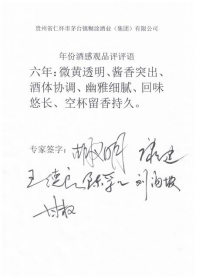 贵州省仁怀市茅台镇糊涂酒业（集团）有限公司
年份酒感观品评评语
六年：微黄透明、酱香突出、
酒体协调、幽雅细腻、回味
悠长、空杯留香持久。
专家签字：